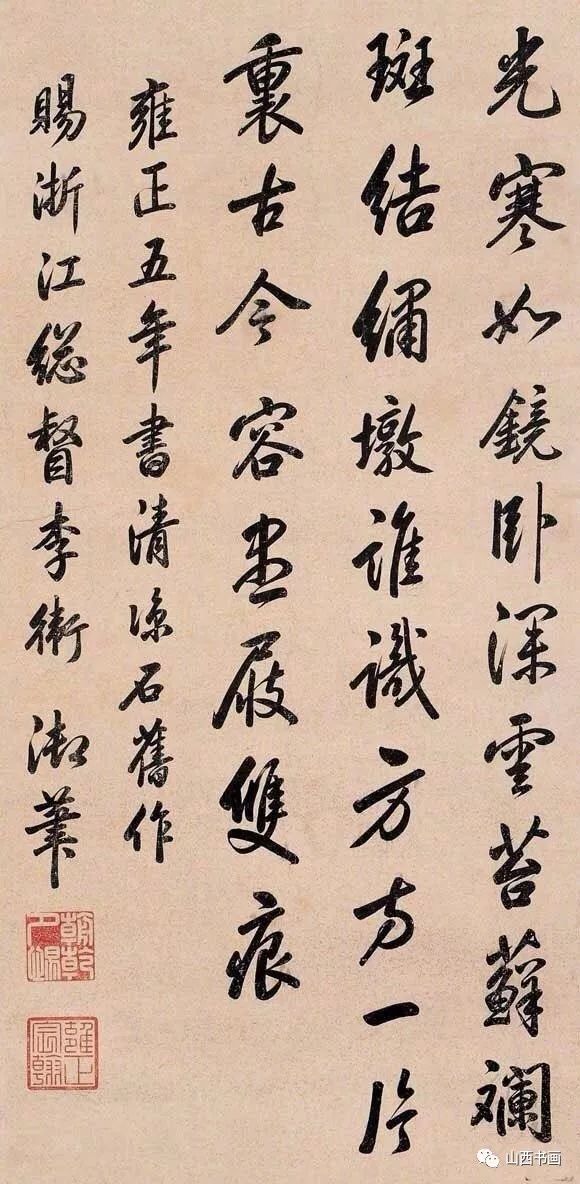 光寒如鏡卧深雲苔蘚斕
斑結繡墩誰識方方一片
裏古今容盡屐雙痕
雍正五年書清涼石舊作
賜浙江總督李衛 御筆
朝乾夕惕
雍正宸翰
山西书画